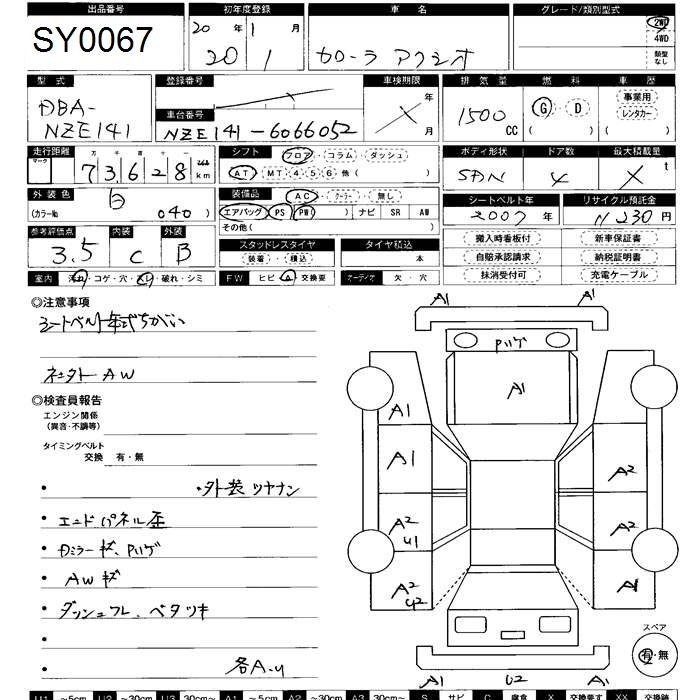 出品番号 初年度登録 車名 グレード/類別型式
SY0067 20年 1月 カローラ アクシオ 2WD
20 1 4WD
類型なし
型式 登録番号 車検期限 排気量 燃料 車歴
DBA- 年 1500 G・D 事業用
NZE141 車台番号 月 CC ( ) レンタカー
NZE141-6066052 ( )
走行距離 シフト フロア・コラム・ダッシュ ボディ形状 ドア数 最大積載量
マーク 万 千 百 十
73628 km AT・MT 4・5・6 他( ) SDN 4 X t
外装色 白 装備品 AC・クーラー・無し シートベルト年式 リサイクル預託金
(カラーNo 040 ) エアバッグ PS PW( ) ナビ SR AW 2007年 11230円
その他( )
参考評価点 内装 外装 スタッドレスタイヤ タイヤ積込 搬入時看板付 新車保証書
3.5 C B 装着・積込 本 自賠承認請求 納税証明書
室内 汚れ・コゲ・穴・スレ・破れ・シミ FW ヒビ・A・交換要 オーディオ 欠・穴 抹消受付可 充電ケーブル
◎注意事項
シートベルト年式ちがい
ネッタトAW
◎検査員報告
エンジン関係
(異音・不調等)
タイミングベルト
交換 有・無
・外装ツヤナシ
・エンドパネル歪
・Dミラーキズ、Pハゲ
・AWキズ
・ダッシュフレ、ベタツキ
各A.U
A1 A1
Pハゲ
A1
A1
A1 A2
A2 U1 A2
A2 U2 A1
A1 U2 A1
スペア
有・無
U1 ~5cm U2 ~30cm U3 30cm~ A1 ~5cm A2 ~30cm A3 30cm~ S サビ C 腐食 X 交換要す XX 交換跡